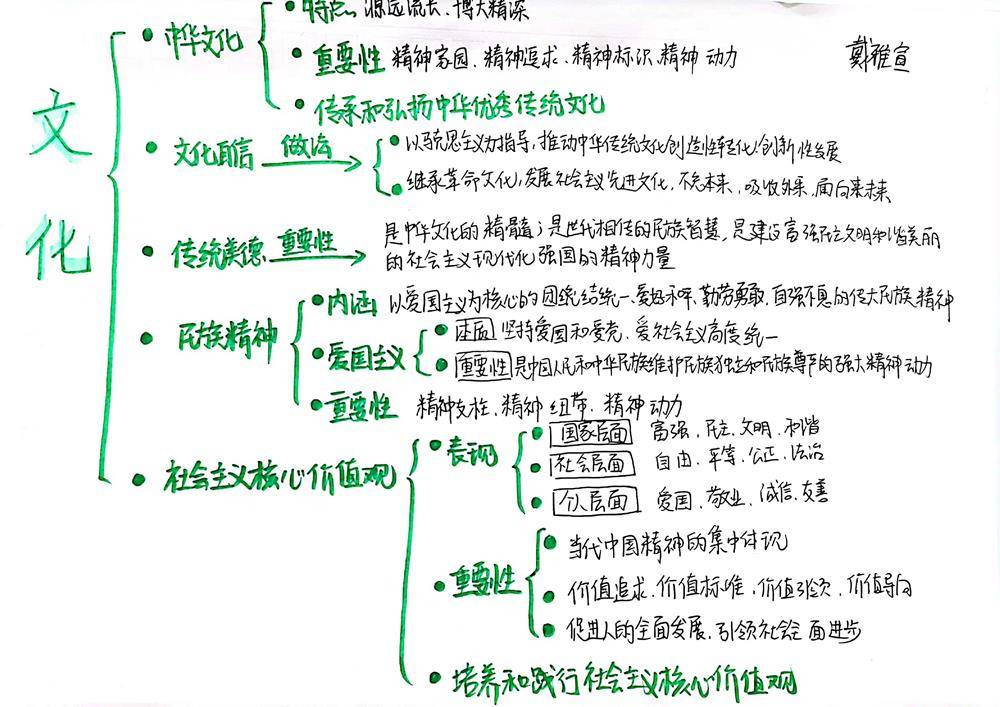 文化
中华文化
特点 源远流长、博大精深
重要性 精神家园、精神追求、精神标识、精神动力
戴雅宣
传承和弘扬中华优秀传统文化
文化自信 做法
以马克思主义为指导,推动中华传统文化创造性转化、创新性发展
继承革命文化,发展社会主义先进文化,不忘本来,吸收外来,面向未来
传统美德 重要性
是中华文化的精髓;是世代相传的民族智慧,是建设富强民主文明和谐美丽
的社会主义现代化强国的精神力量
民族精神
内涵 以爱国主义为核心的团结统一、爱好和平、勤劳勇敢、自强不息的伟大民族精神
爱国主义
本质 坚持爱国和爱党、爱社会主义高度统一
重要性 是中国人民和中华民族维护民族独立和民族尊严的强大精神动力
重要性 精神支柱、精神纽带、精神动力
社会主义核心价值观
表现
国家层面 富强、民主、文明、和谐
社会层面 自由、平等、公正、法治
个人层面 爱国、敬业、诚信、友善
重要性
当代中国精神的集中体现
价值追求、价值标准、价值引领、价值导向
促进人的全面发展、引领社会全面进步
培养和践行社会主义核心价值观